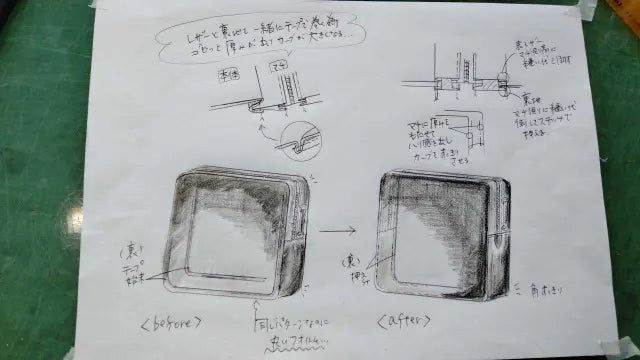 レザーと裏地を一緒にテープで巻く為
コロッと厚みが出てカーブが大きくなる…
本体
マチ
表レザー
マチ側に
縫い代を倒す
裏地
マチ側に縫い代
倒してステッチで
押える
マチに厚みを
もたせて
ハリ感を出し
カーブをすっきり
させる
(裏)
テープ
始末
(裏)
押え
<before>
同じパターンなのに
丸いフォルム…
<after>
角すっきり